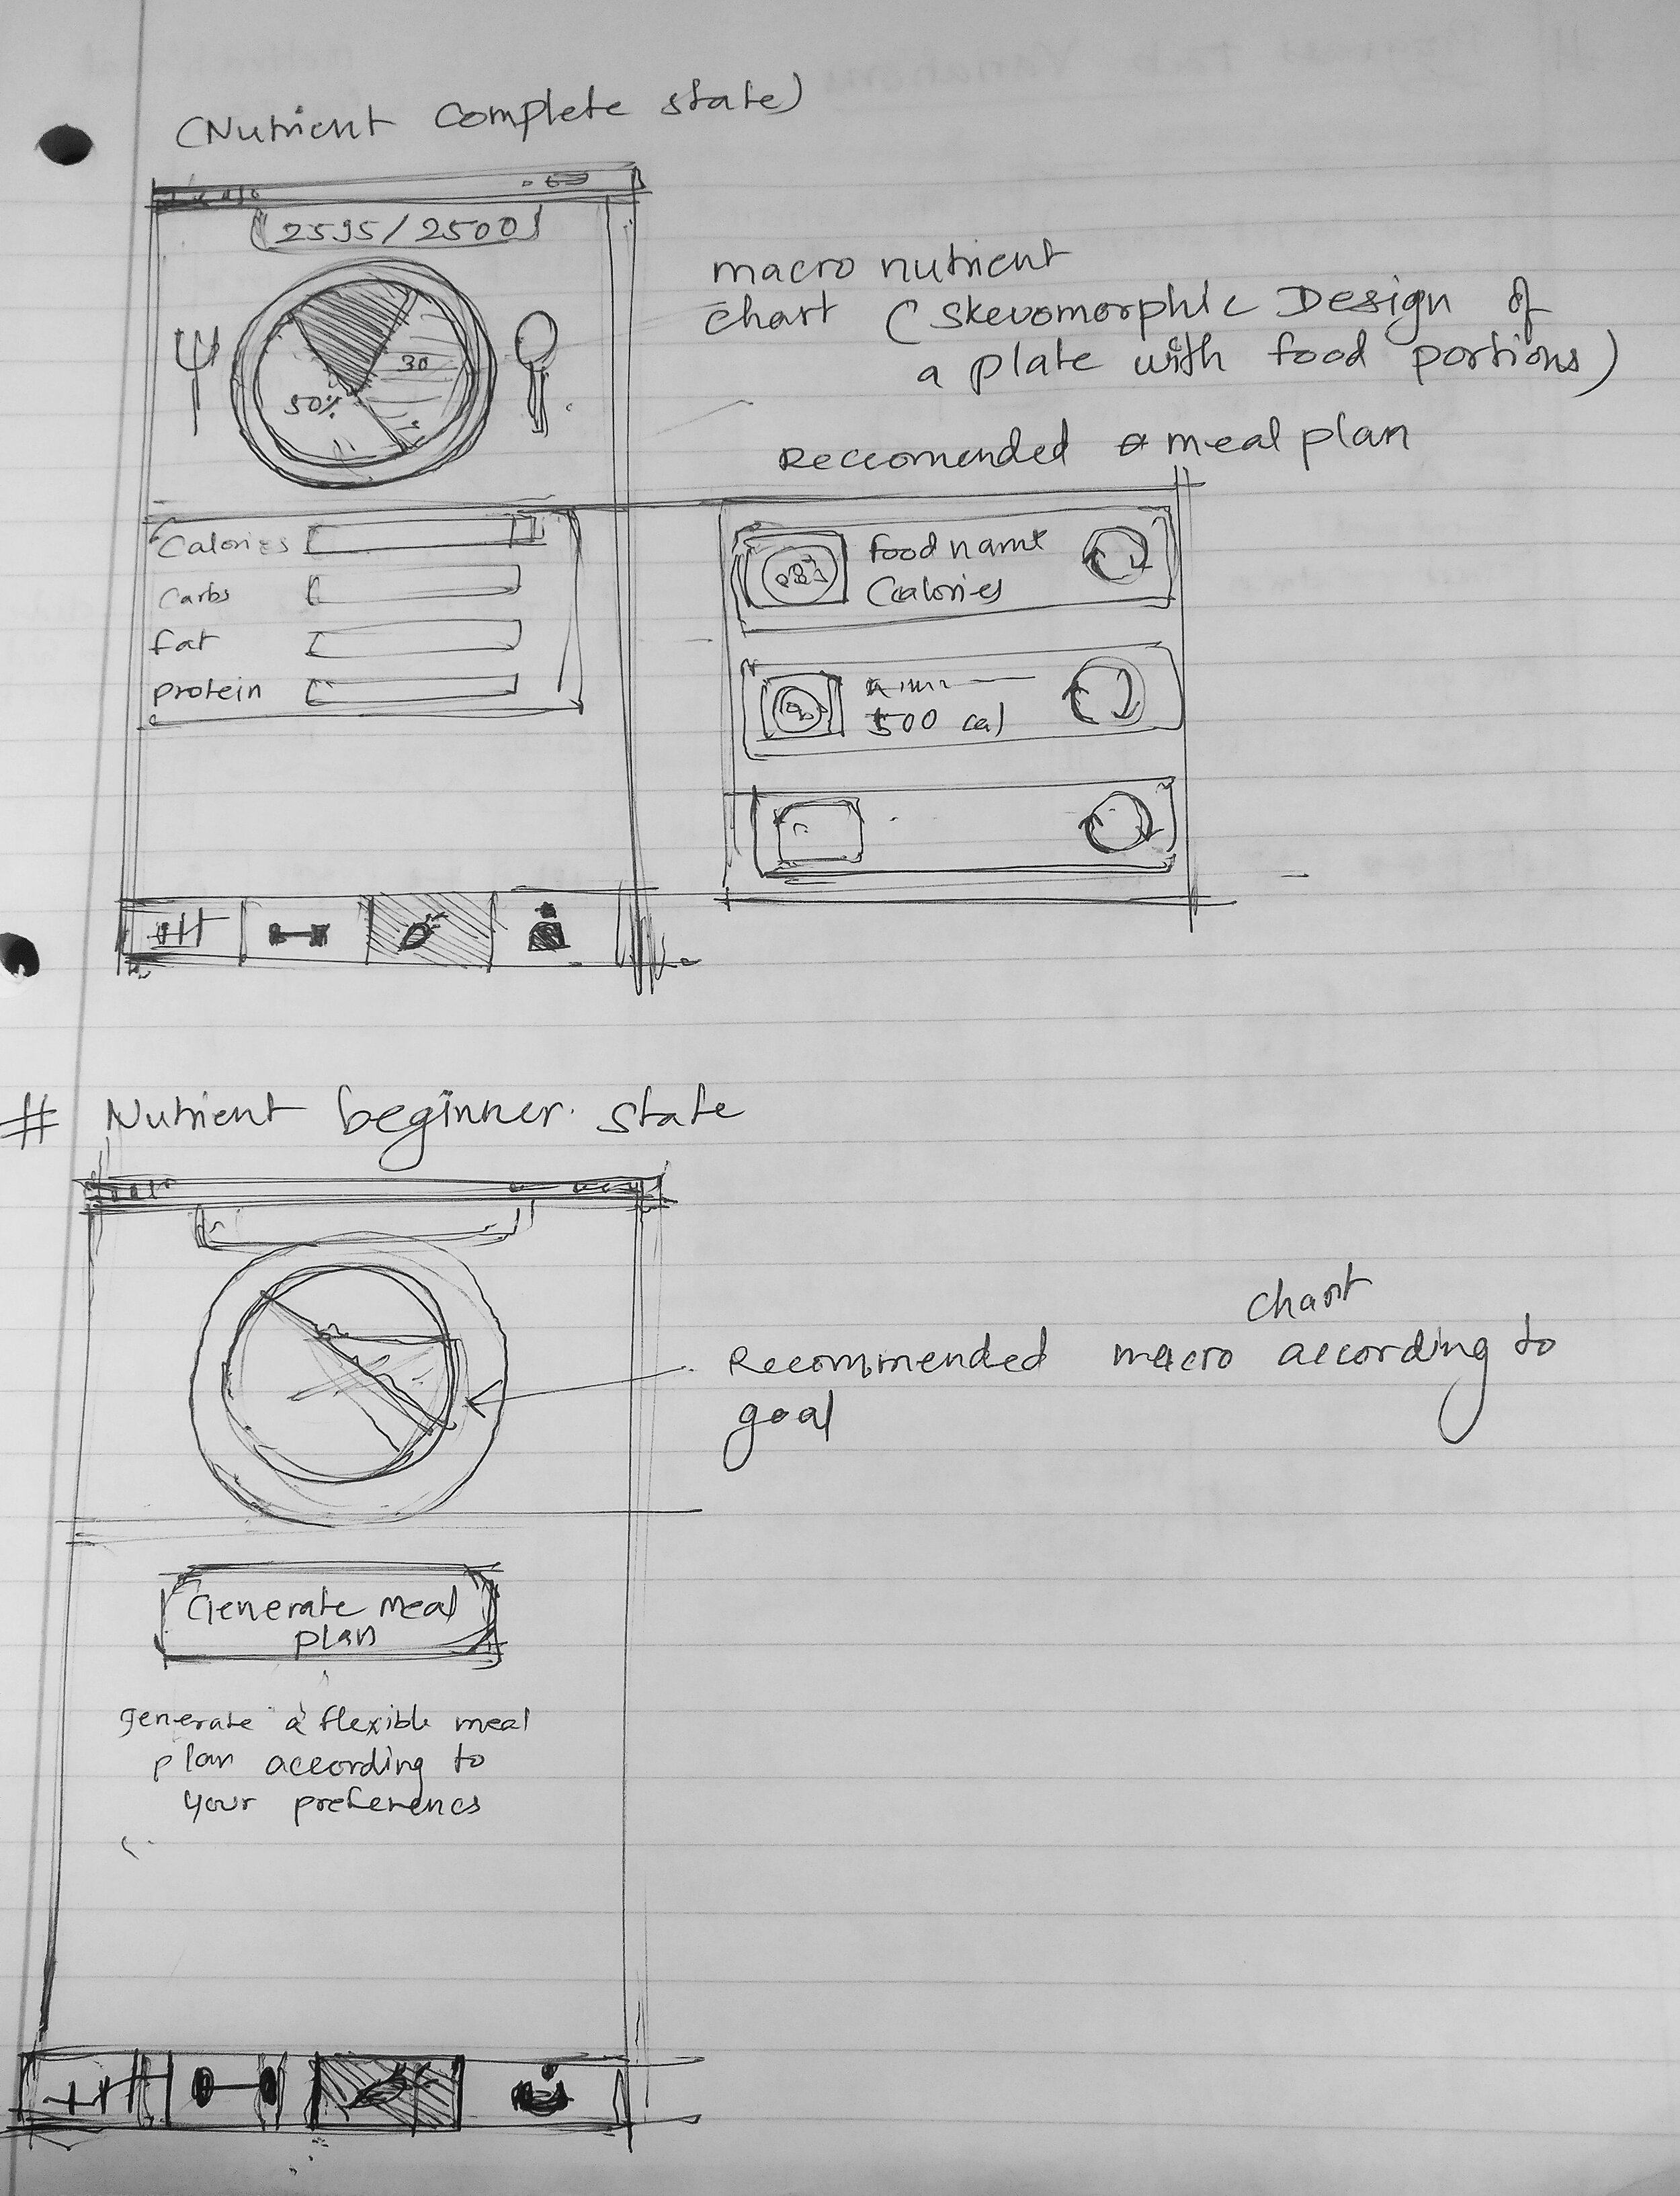 (Nutrient Complete state)
2595/2500
macro nutrient
chart (Skevomorphic Design of
a plate with food portions)
30
50%
Reccomended meal plan
Calories
Carbs
fat
protein
food name
Calories
500 cal
# Nutrient beginner state
chart
Recommended macro according to
goal
Generate meal
plan
generate a flexible meal
plan according to
your preferences